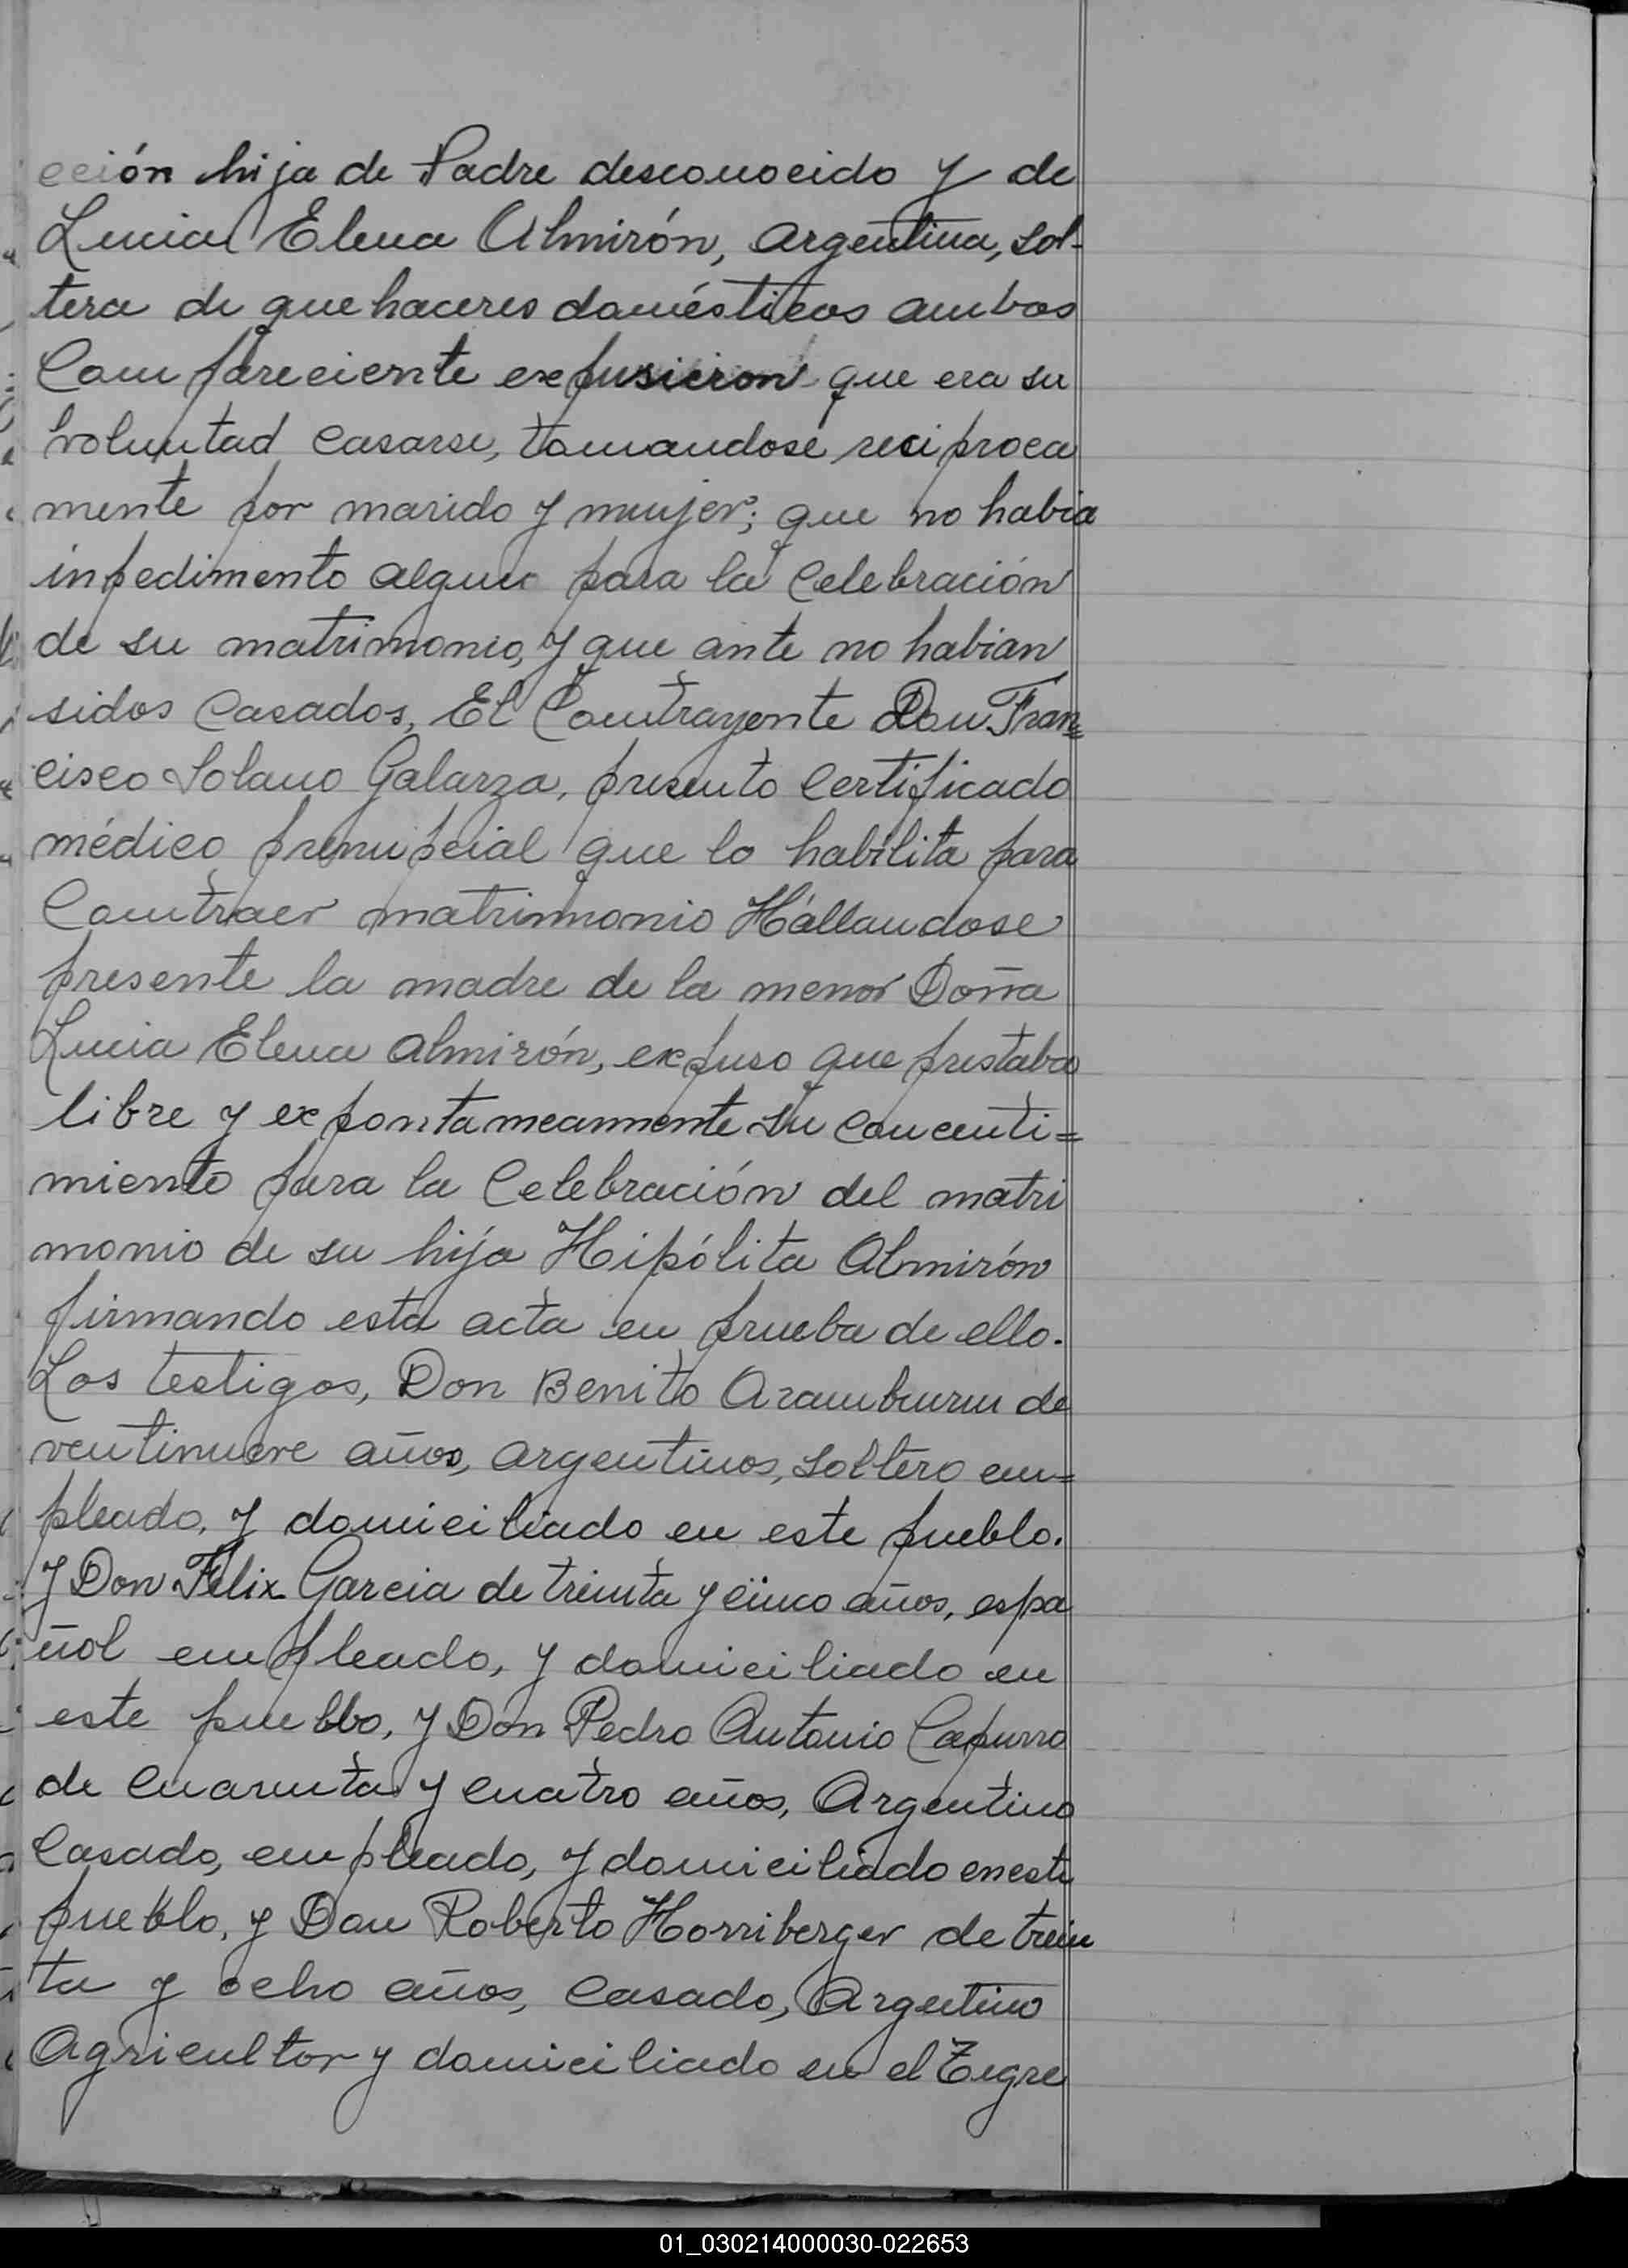 cción hija de Padre desconocido y de
Lucia Elena Almirón, argentina, sol-
tera de que haceres domésticos ambos
Compareciente expusieron que era su
voluntad casarse, tomandose reciproca
mente por marido y mujer; que no habia
inpedimento alguno para la celebración
de su matrimonio, y que ante no habian
sidos casados, El Contrayente Don Fran=
cisco Solano Galarza, presento certificado
médico prenupcial que lo habilita para
Contraer matrimonio Hállandose
presente la madre de la menor Doña
Lucia Elena Almirón, expuso que prestaba
libre y expontameanmente su concenti=
miento para la celebración del matri
monio de su hija Hipólita Almirón
firmando esta acta en prueba de ello.
Los testigos, Don Benito Aramburu de
ventinueve años, argentinos, soltero em=
pleado, y domiciliado en este pueblo.
y Don Felix Garcia de treinta y cinco años, espa
ñol empleado, y domiciliado en
este pueblo, y Don Pedro Antonio Capurro
de cuarenta y cuatro años, Argentino
Casado, empleado, y domiciliado en este
pueblo, y Don Roberto Horriberger de trein
ta y ocho años, casado, Argentino
Agricultor y domiciliado en el Tigre
01_030214000030-022653